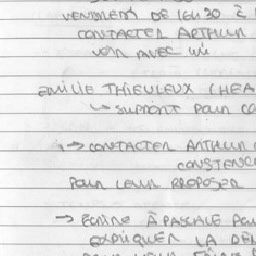 VENDREDI DE 16H30 À
CONTACTER ARTHUR
VOIR AVEC LUI
EMILIE THIEULEUX (HEA
↳ SUPPORT POUR CO
→ CONTACTER ARTHUR
CONSTENC
POUR LEUR PROPOSER
→ ECRIRE À PASCALE POU
EXPLIQUER LA DÉ
POUR